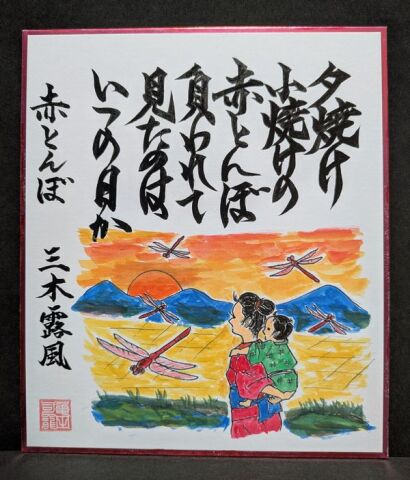 夕焼け
小焼けの
赤とんぼ
負われて
見たのは
いつの日か
赤とんぼ
三木露風